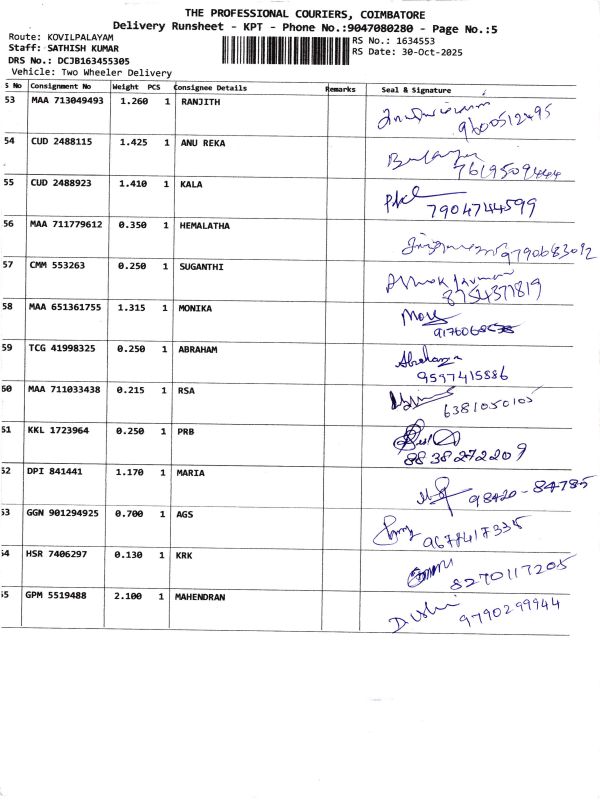 THE PROFESSIONAL COURIERS, COIMBATORE
Delivery Runsheet - KPT - Phone No.:9047080280 - Page No.:5
Route: KOVILPALAYAM
RS No.: 1634553
Staff: SATHISH KUMAR
RS Date: 30-Oct-2025
DRS No.: DCJB163455305
Vehicle: Two Wheeler Delivery
S No Consignment No Weight PCS Consignee Details Remarks Seal & Signature
53 MAA 713049493 1.260 1 RANJITH
9600512495
54 CUD 2488115 1.425 1 ANU REKA
7619509444
55 CUD 2488923 1.410 1 KALA
7904744599
56 MAA 711779612 0.350 1 HEMALATHA
9790683092
57 CMM 553263 0.250 1 SUGANTHI
Ashok kumar
8754371819
58 MAA 651361755 1.315 1 MONIKA
59 TCG 41998325 0.250 1 ABRAHAM
Abraham
9597415886
60 MAA 711033438 0.215 1 RSA
6381050105
51 KKL 1723964 0.250 1 PRB
8838272209
52 DPI 841441 1.170 1 MARIA
98420-84785
53 GGN 901294925 0.700 1 AGS
9677417335
54 HSR 7406297 0.130 1 KRK
8270117205
55 GPM 5519488 2.100 1 MAHENDRAN
9790299944